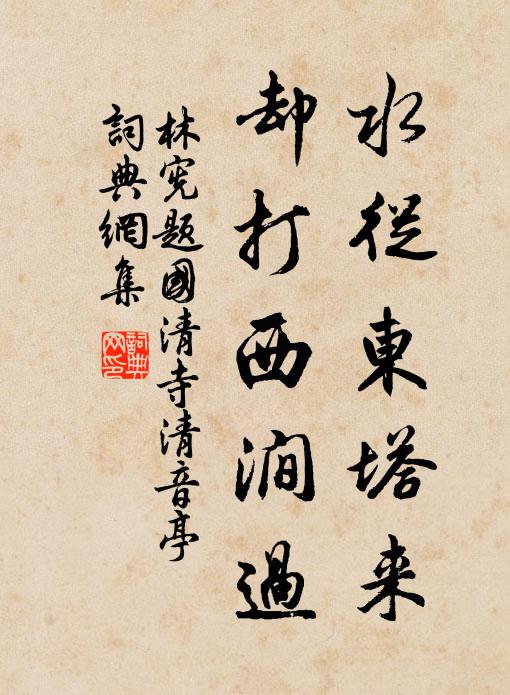 水從東塔来
却打西澗過
林憲題國清寺清音亭
詞典網集
詞典網印